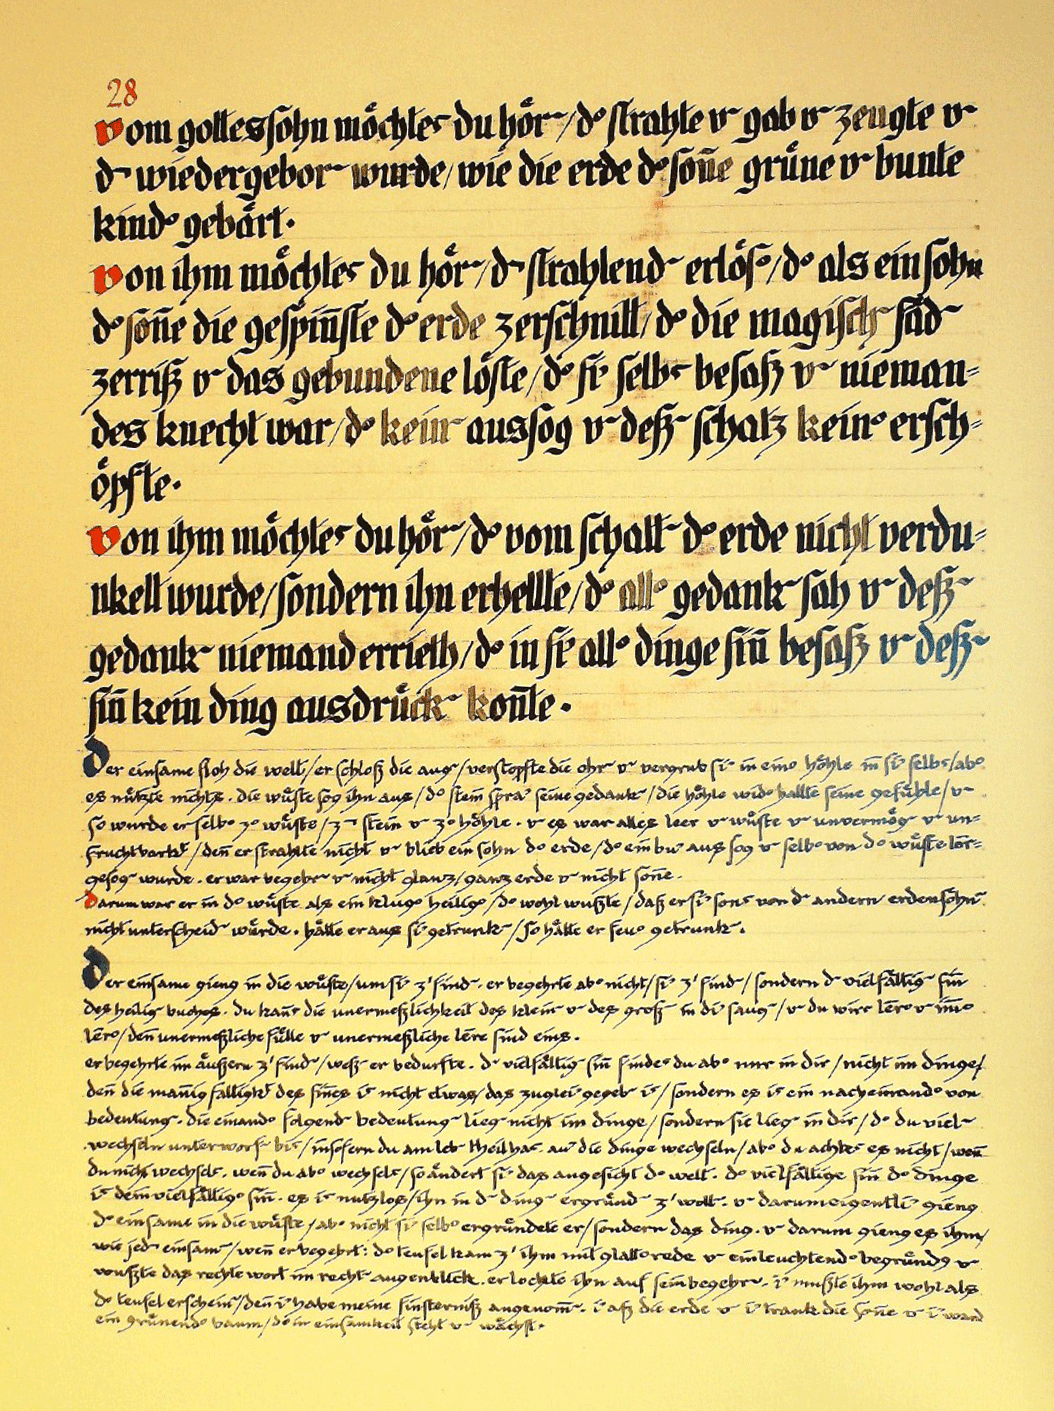 28
vom gottessohn möchtes͛ du hör͛/d° strahlte v͛ gab v͛ zeugte v͛
d͛ wiedergebor͛ wurde/wie die erde d° son̄e grüne v͛ bunte
kind° gebärt.
von ihm möchtes͛ du hör͛/d͛ strahlend͛ erlös°/d° als ein sohn
d° son̄e die gespin̄ste d° erde zerschnitt/d° die magisch͛ fäd͛
zerriß v͛ das gebundene löste/d° si͛ selbs͛ besaß v͛ nieman=
des knecht war/d° kein͛ aussog v͛ deß͛ schatz kein° ersch=
öpfte.
von ihm möchtes͛ du hör͛/d° vom schatt͛ d° erde nicht verdu=
nkelt wurde/sondern ihn erhellte/d° all° gedank͛ sah v͛ deß͛
gedank͛ niemand errieth/d° in si͛ all° dinge sin̄ besaß v͛ deß͛
sin̄ kein ding ausdrück͛ kon̄te.
Der einsame floh die welt/er schloß die aug͛/verstopfte die ohr͛ v͛ vergrub si͛ in ein° höhle in si͛ selbs͛/ab°
es nützte nichts. die wüste sog ihn aus/d° stein spra͛ seine gedank͛/die höhle wid° hallte seine gefühle/v͛
so wurde er selb° z° wüste/z͛ stein v͛ z° höhle. v͛ es war alles leer v͛ wüste v͛ unvermög͛ v͛ un=
fruchtbarkt͛/den̄ er strahlte nicht v͛ blieb ein sohn d° erde/d° ein bu͛ aus sog v͛ selb° von d° wüste leer=
gesog͛ wurde. er war begehr͛ v͛ nicht glanz/ganz erde v͛ nicht son̄e.
darum war er in d° wüste als ein klug° heilig°/d° wohl wußte/daß er si͛ sons͛ von d͛ andern erdensöhn͛
nicht unterscheid͛ würde. hätte er aus si͛ getrunk͛/so hätte er feu° getrunk͛.
Der einsame gieng in die wüste/um si͛ z' find͛. er begehrte ab° nicht/si͛ z' find͛/sondern d͛ vielfältig͛ sin̄
des heilig͛ buches. du kan̄s͛ die unermeßlichkeit des klein͛ v͛ des groß͛ in di͛ saug͛/v͛ du wirs͛ leere v͛ im̄°
leer°/den̄ unermeßliche fülle v͛ unermeßliche leere sind eins.
er begehrte im äußern z' find͛/weß͛ er bedurfte. d͛ vielfältig͛ sin̄ findes͛ du ab° nur in dir/nicht im dinge/
den̄ die man̄igfaltigkt͛ des sin̄es is͛ nicht etwas/das zuglei͛ gegeb͛ is͛/sondern es is͛ ein nacheinand° von
bedeutung͛. die einand° folgend͛ bedeutung͛ lieg͛ nicht im dinge/sondern sie lieg͛ in dir/d° du viel͛
wechseln unterworf͛ bis͛/insofern du am leb͛ theil has͛. au͛ die dinge wechseln/ab° du achtes͛ es nicht/wen̄
du nicht wechsels͛. wen̄ du ab° wechsels͛/so ändert si͛ das angesicht d° welt. d° vielfältige sin̄ d° dinge
is͛ dein vielfältig° sin̄. es is͛ nutzlos/ihn in d͛ ding͛ ergründ͛ z' woll͛. v͛ darum eigentli͛ gieng
d° einsame in die wüste/ab° nicht si͛ selb° ergründete er/sondern das ding. v͛ darum gieng es ihm/
wie jed͛ einsam͛/wen̄ er begehrt: d° teufel kam z' ihm mit glatt° rede v͛ einleuchtend° begründg͛ v͛
wußte das rechte wort im recht͛ augenblick. er lockte ihn auf sein begehr͛. i͛ mußte ihm wohl als
d° teufel erschein͛/den̄ i͛ habe meine finsterniß angenom̄͛. i͛ aß die erde v͛ i͛ trank die son̄e v͛ i͛ ward
ein grünend° baum/d° in einsamkeit steht v͛ wächst.